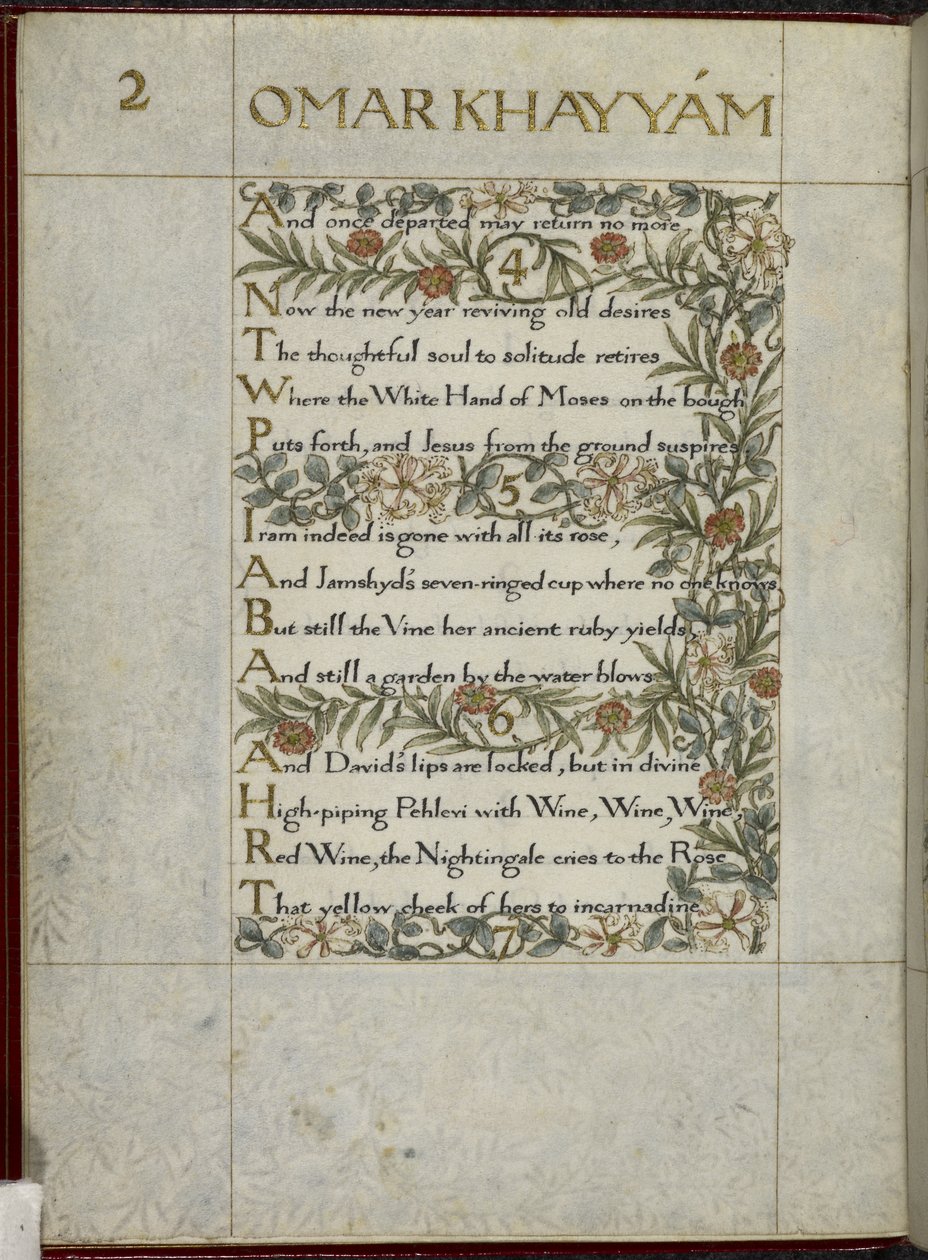 2
OMAR KHAYYÁM
And once departed may return no more
4
Now the new year reviving old desires
The thoughtful soul to solitude retires
Where the White Hand of Moses on the bough
Puts forth, and Jesus from the ground suspires.
5
Iram indeed is gone with all its rose,
And Jamshyd's seven-ringed cup where no one knows
But still the Vine her ancient ruby yields,
And still a garden by the water blows
6
And David's lips are locked, but in divine
High-piping Pehlevi with Wine, Wine, Wine,
Red Wine, the Nightingale cries to the Rose
That yellow cheek of hers to incarnadine
7